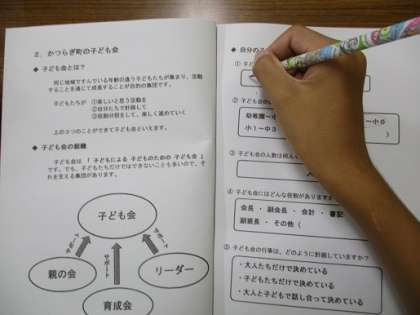 2．かつらぎ町の子ども会
◆ 子ども会とは？
同じ地域ですんでいる年齢の違う子どもたちが集まり、活動
することを通じて成長することが目的の集団です。
子どもたちが ①楽しいと思う活動を
②自分たちで計画して
③役割分担をして、楽しく進めていく
上の3つのことができて子ども会といえます。
◆ 子ども会の組織
子ども会は「 子どもによる 子どものための 子ども会 」
です。でも、子どもたちだけではできないことも多いので、それ
を支える集団があります。
子ども会
サポート
サポート
サポート
親の会
リーダー
育成会
◆ 自分の
①
② 子ども会の
幼稚園～
小1～中3
③ 子ども会の人数は何人
④ 子ども会にはどんな役割がありますか
会長 ・ 副会長 ・ 会計 ・ 書記
副班長 ・ その他（
⑤ 子ども会の行事は、どのように計画していますか？
・大人たちだけで決めている
・子どもたちだけで決めている
・大人と子どもで話し合って決めている